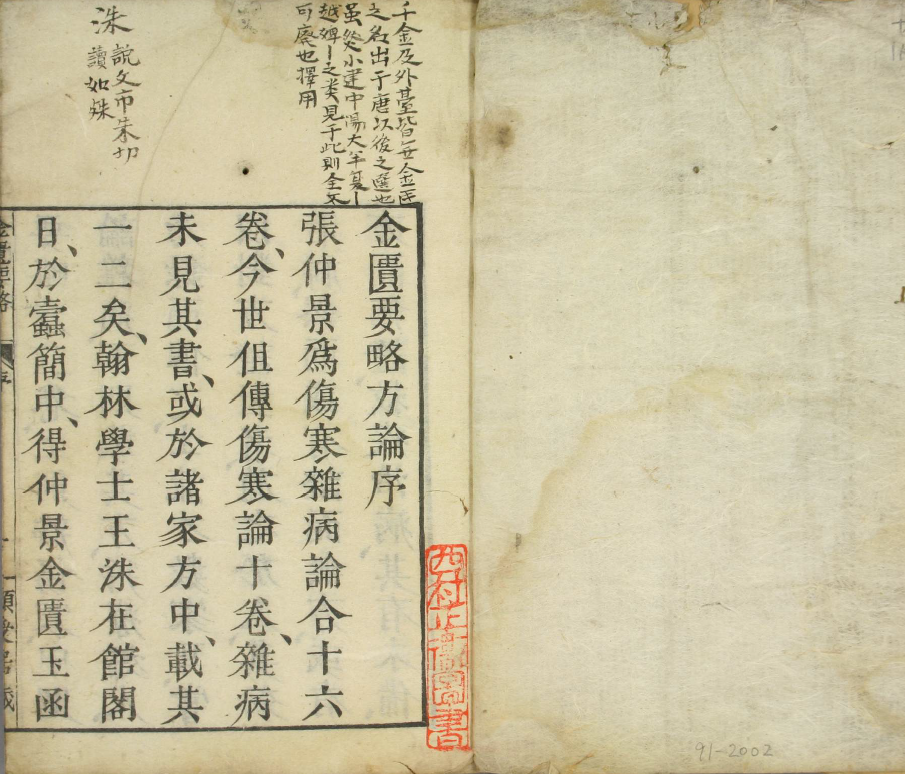 千金及外臺皆無金匱
之名出于唐以後之選也
虽然小建中湯大半夏
越婢之类見于此則全不
可廢也擇用
洙 說文市朱切
讀如殊
金匱要略方論序
張仲景爲傷寒雜病論合十六
卷、今世但傳傷寒論十卷、雜病
未見其書、或於諸家方中、載其
一二矣、翰林學士王洙在館閣
日、於蠹簡中、得仲景金匱玉函
金匱要略
序
西村
書
91-2002